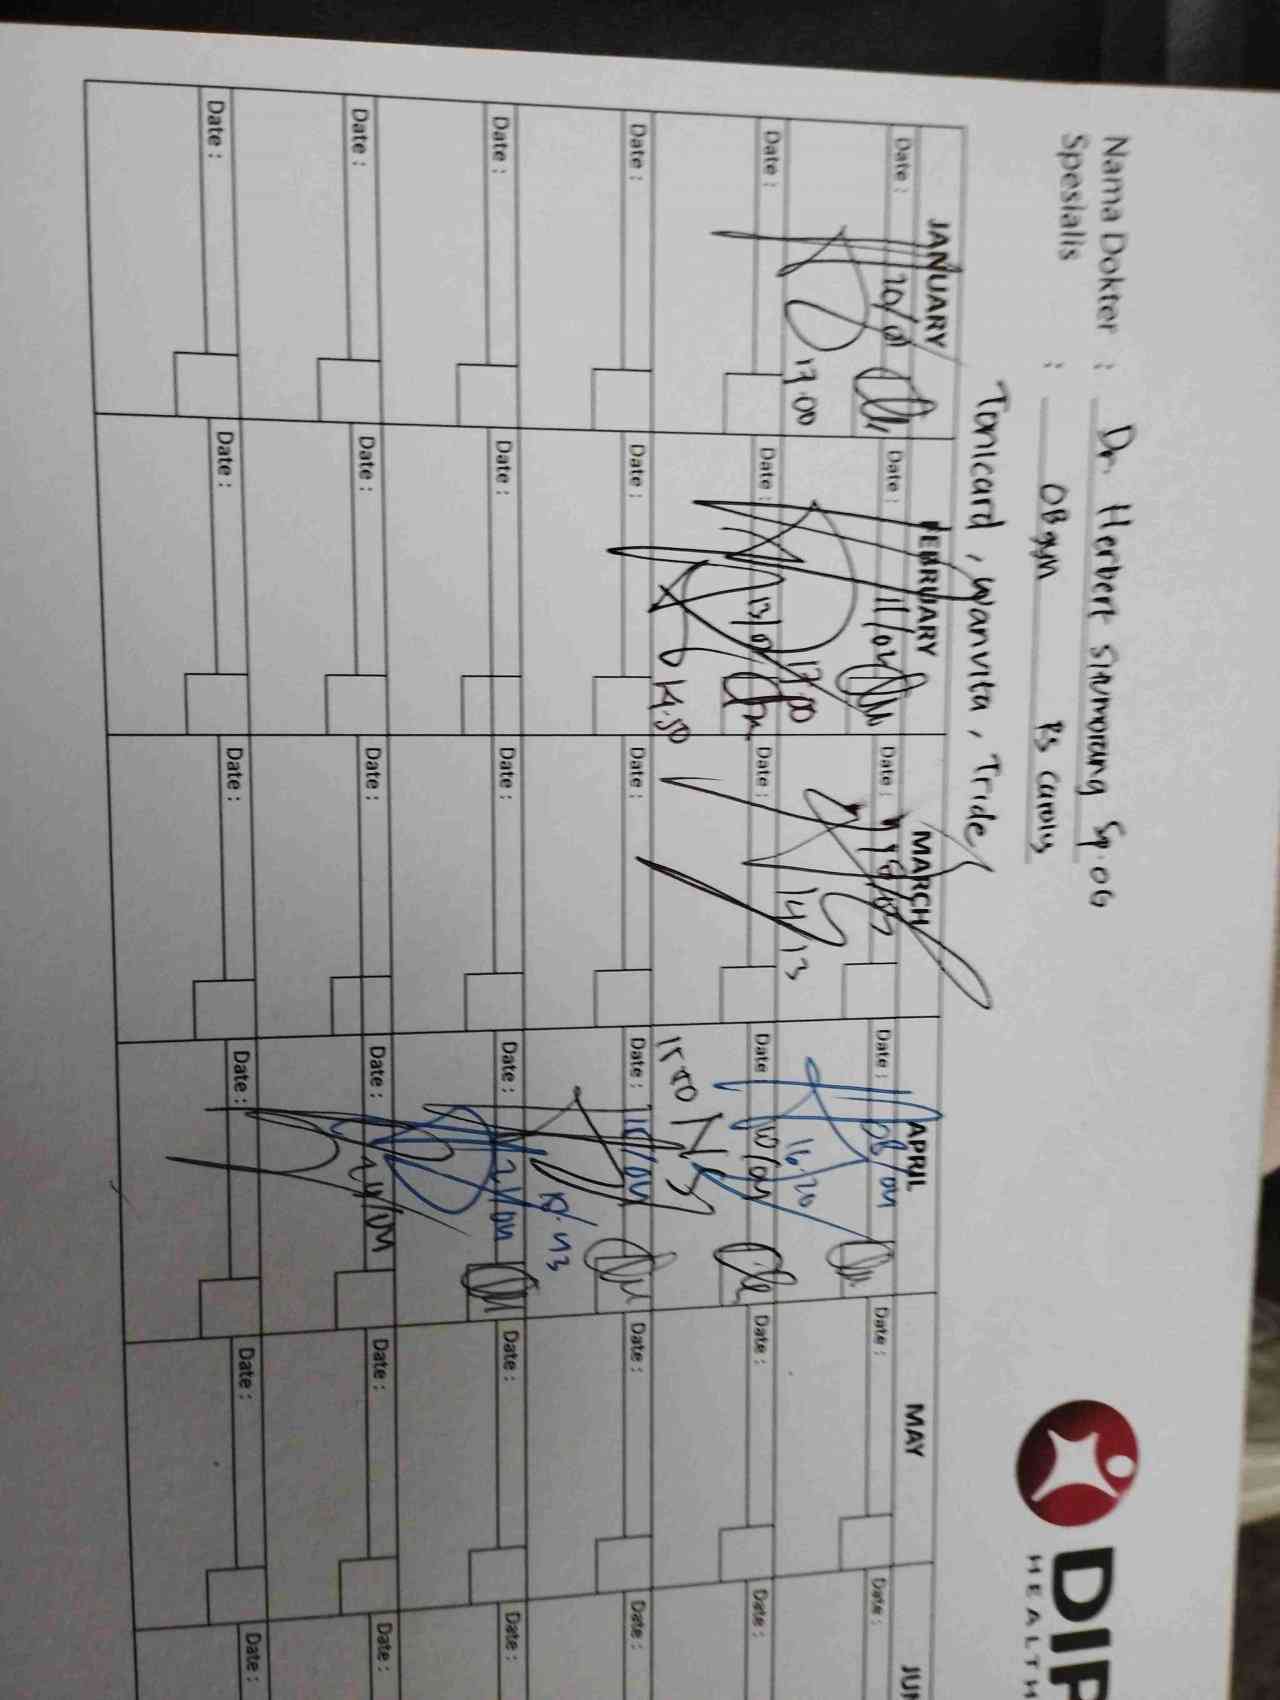 Nama Dokter : Dr. Herbert situmorang Sp.OG
Spesialis : OBgyn RS carolus
DIP
HEALTH
Tonicard, Wanvita, Tride
JANUARY FEBRUARY MARCH APRIL MAY JUN
Date : 20/01 Date : 11/02 Date : 18/03 Date : 08/04 Date : Date :
17.00 17.00 14.13 16.20
Date : Date : 13/02 Date : Date : 10/04 Date : Date :
14.50 15.50
Date : Date : Date : Date : 16/04 Date : Date :
Date : Date : Date : Date : 21/04 Date : Date :
Date : Date : Date : Date : 24/04 Date : Date :
Date : Date : Date : Date : Date : Date :